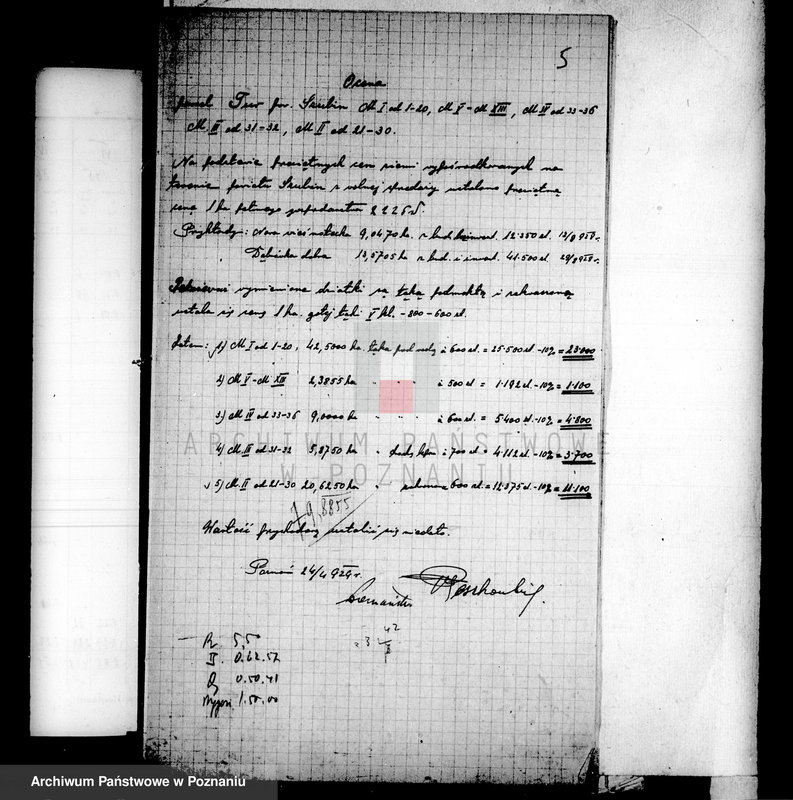 5
Ocena
Tur pow. Szubin M I od 1-20, M V - M XIII, M IV od 33-36
M III od 31-32, M II od 21-30.
Na podstawie przeciętnych cen ziemi wypośrodkowanych na
terenie powiatu Szubin z wolnej sprzedaży ustalono przeciętną
cenę 1 ha pełnego gospodarstwa 2225 zł.
Przykłady: Nowa wieś notecka 9,0470 ha z bud. bezinwent. 12.350 zł.
Dąbrówka 13,5705 ha z bud. i inwent. 41.500 zł.
wymienione działki są łąką podmokłą i
ustala się cenę 1 ha gołej łąki V kl. - 800-600 zł.
Zatem: 1) M I od 1-20, 42,5000 ha łąka pod wodą à 600 zł. = 25.500 zł. -10% = 23.000
2) M V - M XIII 2,3855 ha " " " à 500 zł = 1.192 zł. -10% = 1.100
3) M IV od 33-36 9,0000 ha " " à 600 zł. = 5.400 zł. -10% = 4.800
4) M III od 31-32 5,8750 ha " à 700 zł = 4.112 zł. -10% = 3.700
5) M II od 21-30 20,6250 ha " à 600 zł. = 12.375 zł. -10% = 11.100
79,8855
Wartość przychodową ustalić się nie dało.
Poznań 24/4 929 r.
R 5,50
B. 0.62.57
0.50.41
1.50.00
ARCHIWUM PAŃSTWOWE
W POZNANIU
Archiwum Państwowe w Poznaniu